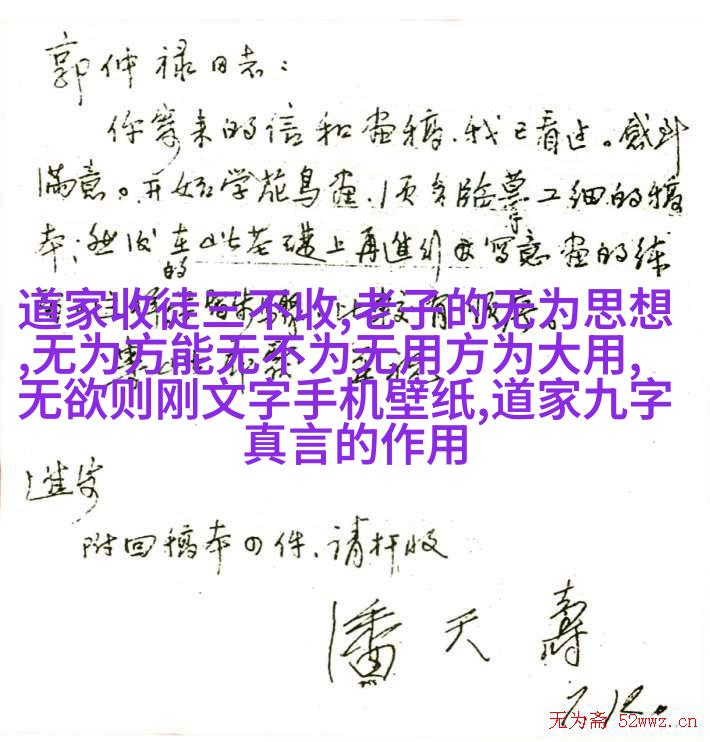 郭仲禄同志:
你寄来的信和画稿、我已看过。感到
满意。开始学花鸟画、须多临摹工细的稿
本;然后在此基础上再进行写意画的练
的
道家收徒三不收,老子的无为思想
,无为方能无不为无用方为大用,
无欲则刚文字手机壁纸,道家九字
真言的作用
进安
附回稿本四件、请杆收
潘天寿
7.12.
无为斋 52wwz.cn